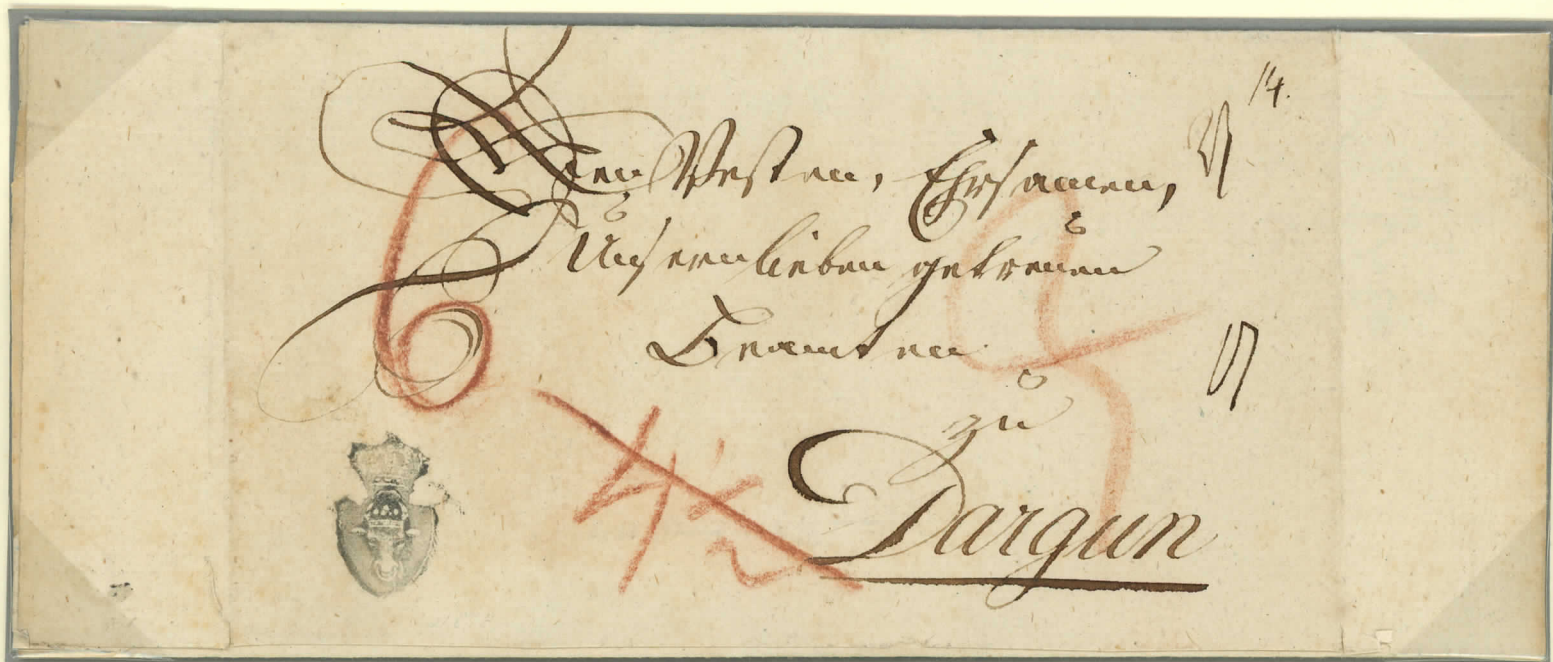 14.
Den Vesten, Ehrsamen,
Unsern lieben getreuen
Beamten
zu
Dargun
6
4 1/2